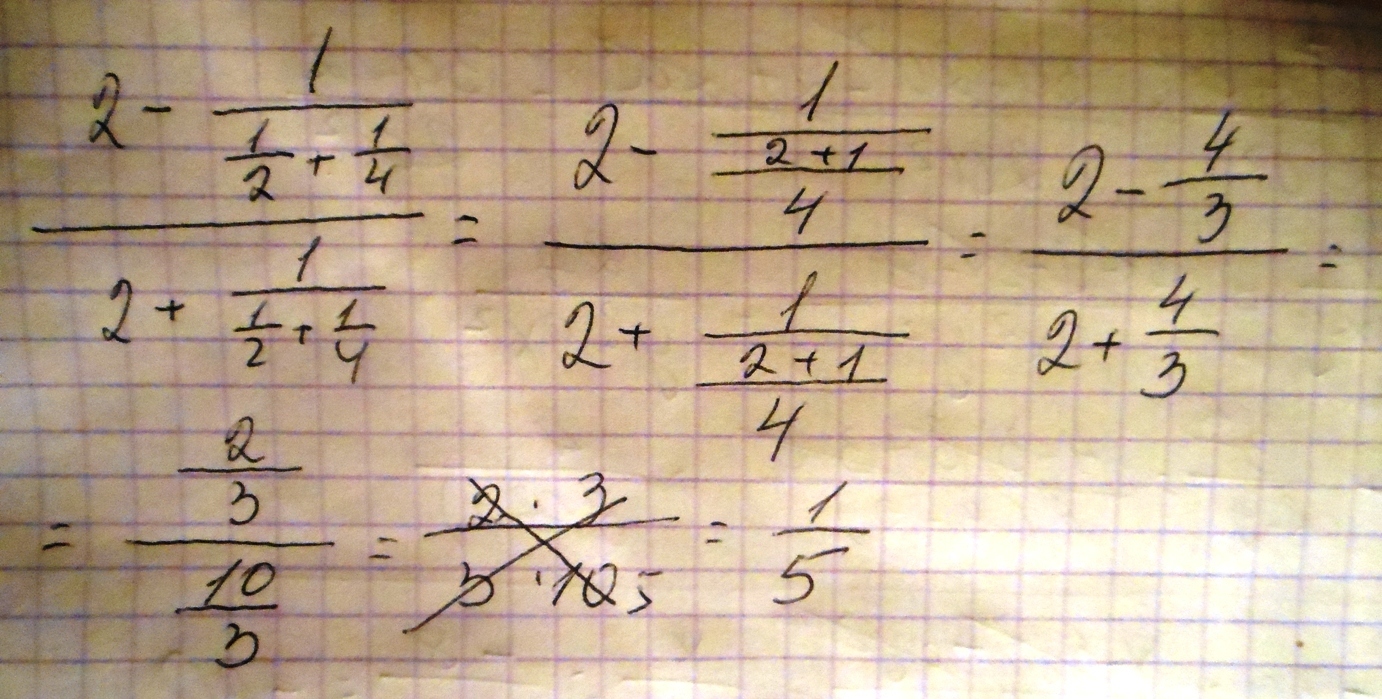 (2 - 1/(1/2 + 1/4))/(2 + 1/(1/2 + 1/4)) = (2 - 1/((2+1)/4))/(2 + 1/((2+1)/4)) = (2 - 4/3)/(2 + 4/3) =
= (2/3)/(10/3) = (2 · 3)/(3 · 10 5) = 1/5